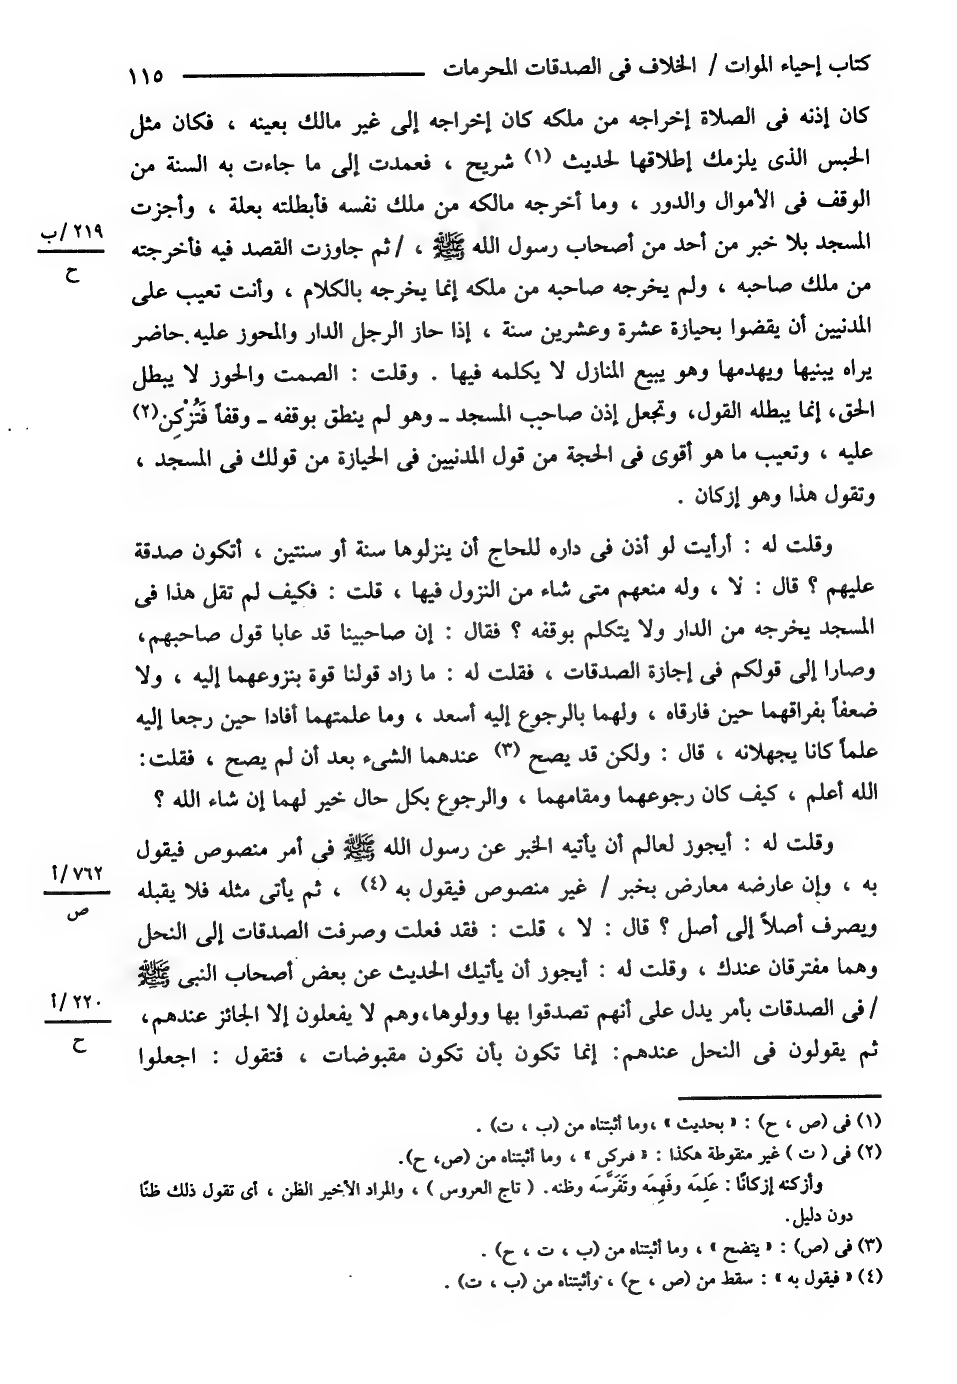 كتاب إحياء الموات / الخلاف فى الصدقات المحرمات ـــــــ ١١٥
كان إذنه فى الصلاة إخراجه من ملكه كان إخراجه إلى غير مالك بعينه ، فكان مثل
الحبس الذى يلزمك إطلاقها لحديث (١) شريح ، فعمدت إلى ما جاءت به السنة من
الوقف فى الأموال والدور ، وما أخرجه مالكه من ملك نفسه فأبطلته بعلة ، وأجزت
المسجد بلا خبر من أحد من أصحاب رسول الله ﷺ ، / ثم جاوزت القصد فيه فأخرجته
٢١٩/ب
ح
من ملك صاحبه ، ولم يخرجه صاحبه من ملكه إنما يخرجه بالكلام ، وأنت تعيب على
المدنيين أن يقضوا بحيازة عشرة وعشرين سنة ، إذا حاز الرجل الدار والمحوز عليه حاضر
يراه يبنيها ويهدمها وهو يبيع المنازل لا يكلمه فيها . وقلت : الصمت والحوز لا يبطل
الحق، إنما يبطله القول، وتجعل إذن صاحب المسجد ـ وهو لم ينطق بوقفه ـ وقفاً فَتُزْكِن(٢)
عليه ، وتعيب ما هو أقوى فى الحجة من قول المدنيين فى الحيازة من قولك فى المسجد ،
وتقول هذا وهو إزكان .
وقلت له : أرأيت لو أذن فى داره للحاج أن ينزلوها سنة أو سنتين ، أتكون صدقة
عليهم ؟ قال : لا ، وله منعهم متى شاء من النزول فيها ، قلت : فكيف لم تقل هذا فى
المسجد يخرجه من الدار ولا يتكلم بوقفه ؟ فقال : إن صاحبينا قد عابا قول صاحبهم،
وصارا إلى قولكم فى إجازة الصدقات ، فقلت له : ما زاد قولنا قوة بنزوعهما إليه ، ولا
ضعفاً بفراقهما حين فارقاه ، ولهما بالرجوع إليه أسعد ، وما علمتهما أفادا حين رجعا إليه
علماً كانا يجهلانه ، قال : ولكن قد يصح (٣) عندهما الشىء بعد أن لم يصح ، فقلت:
الله أعلم ، كيف كان رجوعهما ومقامهما ، والرجوع بكل حال خير لهما إن شاء الله ؟
وقلت له : أيجوز لعالم أن يأتيه الخبر عن رسول الله ﷺ فى أمر منصوص فيقول
به ، وإن عارضه معارض بخبر / غير منصوص فيقول به (٤) ، ثم يأتى مثله فلا يقبله
٧٦٢/أ
ص
ويصرف أصلاً إلى أصل ؟ قال : لا ، قلت : فقد فعلت وصرفت الصدقات إلى النحل
وهما مفترقان عندك ، وقلت له : أيجوز أن يأتيك الحديث عن بعض أصحاب النبى ﷺ
/ فى الصدقات بأمر يدل على أنهم تصدقوا بها وولوها،وهم لا يفعلون إلا الجائز عندهم،
٢٢٠/أ
ح
ثم يقولون فى النحل عندهم: إنما تكون بأن تكون مقبوضات ، فتقول : اجعلوا
(١) فى (ص ، ح) : « بحديث » ،وما أثبتناه من (ب ، ت) .
(٢) فى ( ت ) غير منقوطة هكذا : « فىركں » ، وما أثبتناه من (ص، ح).
وأزكنه إزكانًا : عَلِمَه وفَهِمَه وتَفَرَّسَه وظنه. ( تاج العروس ) ، والمراد الأخير الظن ، أى تقول ذلك ظنًا
دون دليل.
(٣) فى (ص) : « يتضح » ، وما أثبتناه من (ب ، ت ، ح) .
(٤) « فيقول به » : سقط من (ص ، ح) ، وأثبتناه من (ب ، ت) .